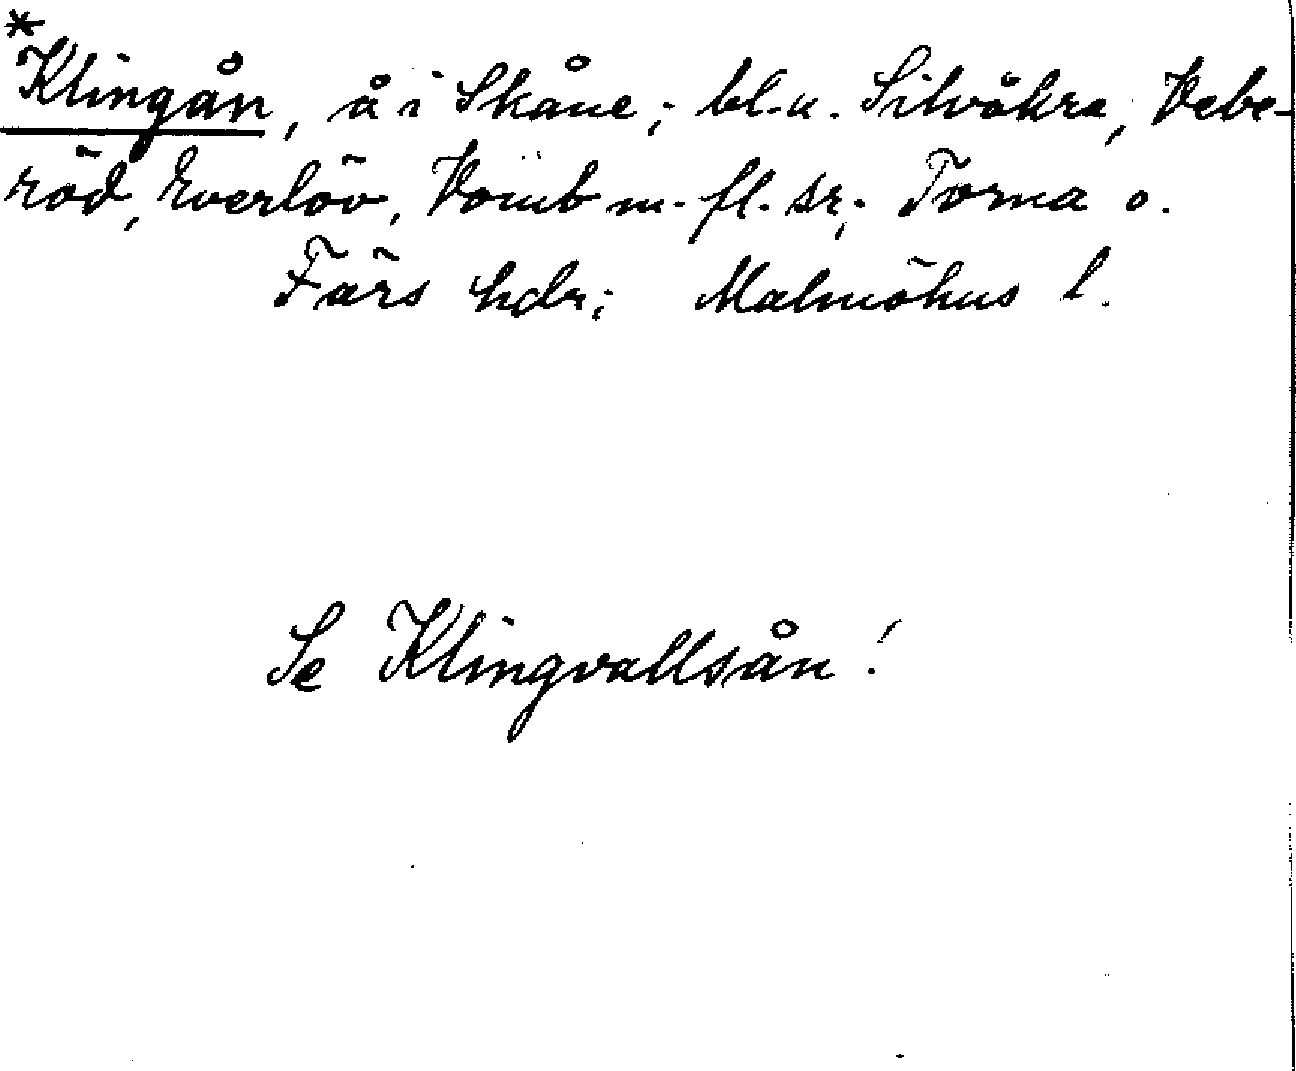 *
Klingån, å i Skåne; bl.a. Silvåkra, Vebe-
röd, Everlöv, Vomb m. fl. sr; Torna o.
Färs hdr; Malmöhus l.
Se Klingvallsån!